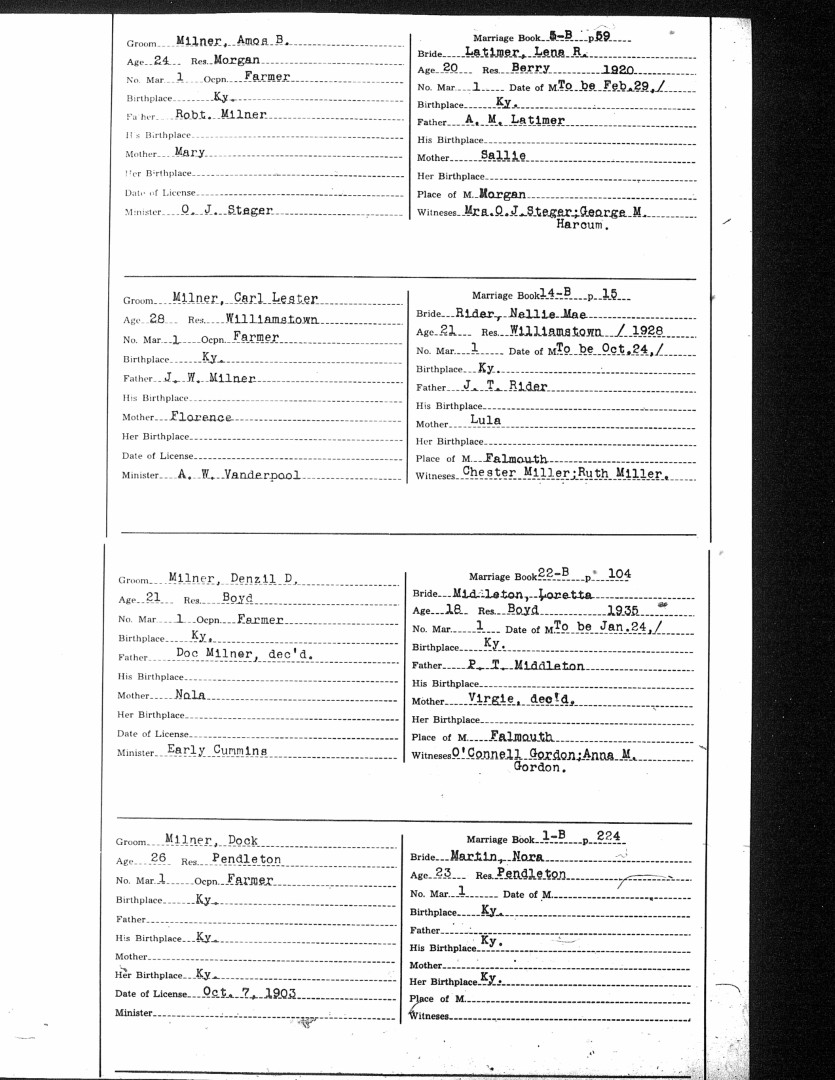 Groom Milner, Amos B.
Age 24 Res. Morgan
No. Mar 1 Ocpn. Farmer
Birthplace Ky.
Father Robt. Milner
His Birthplace
Mother Mary
Her Birthplace
Date of License
Minister O. J. Steger
Marriage Book 5-B p 59
Bride Latimer, Lena R.
Age 20 Res Berry 1920
No. Mar 1 Date of M To be Feb.29,/
Birthplace Ky.
Father A. M. Latimer
His Birthplace
Mother Sallie
Her Birthplace
Place of M. Morgan
Witneses Mrs.O.J.Steger;George M.
Harcum.
Groom Milner, Carl Lester
Age 28 Res. Williamstown
No. Mar. 1 Ocpn. Farmer
Birthplace Ky.
Father J. W. Milner
His Birthplace
Mother Florence
Her Birthplace
Date of License
Minister A. W. Vanderpool
Marriage Book 14-B p. 15
Bride Rider, Nellie Mae
Age 21 Res. Williamstown / 1928
No. Mar. 1 Date of M To be Oct.24,/
Birthplace Ky.
Father J. T. Rider
His Birthplace
Mother Lula
Her Birthplace
Place of M. Falmouth
Witneses Chester Miller;Ruth Miller.
Groom Milner, Denzil D.
Age 21 Res. Boyd
No. Mar 1 Ocpn. Farmer
Birthplace Ky.
Father Doc Milner, dec'd.
His Birthplace
Mother Nola
Her Birthplace
Date of License
Minister Early Cummins
Marriage Book 22-B p 104
Bride Middleton, Loretta
Age 18 Res. Boyd 1935
No. Mar. 1 Date of M To be Jan.24,/
Birthplace Ky.
Father P. T. Middleton
His Birthplace
Mother Virgie, dec'd.
Her Birthplace
Place of M. Falmouth
Witneses O'Connell Gordon;Anna M.
Gordon.
Groom Milner, Dock
Age 26 Res. Pendleton
No. Mar 1 Ocpn. Farmer
Birthplace Ky.
Father
His Birthplace Ky.
Mother
Her Birthplace Ky.
Date of License Oct. 7, 1903
Minister
Marriage Book 1-B p 224
Bride Martin, Nora
Age 23 Res. Pendleton
No. Mar. 1 Date of M.
Birthplace Ky.
Father
His Birthplace Ky.
Mother
Her Birthplace Ky.
Place of M.
Witneses